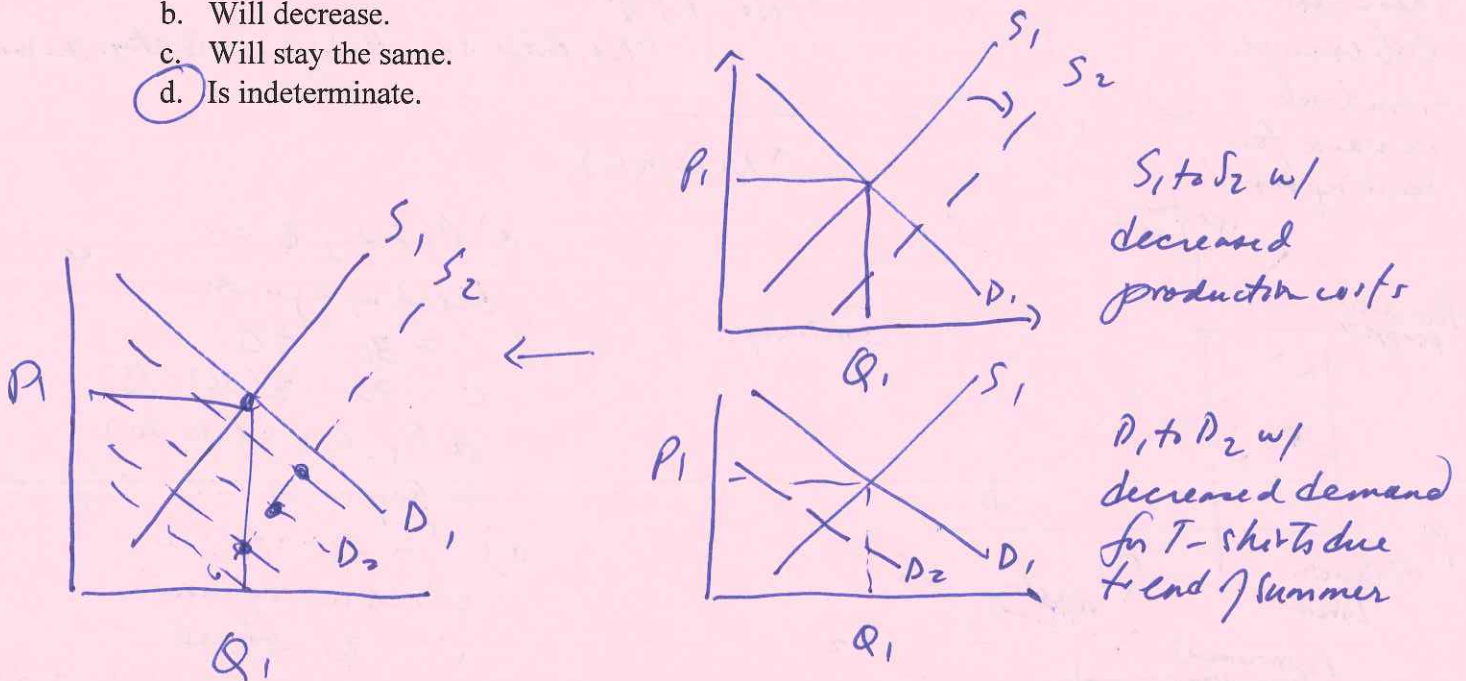 b. Will decrease.
c. Will stay the same.
d. Is indeterminate.
S1
S2
P1
D1
Q1
S1 to S2 w/
decreased
production costs
S1
S2
P1
D1
D2
Q1
S1
P1
D2
D1
Q1
D1 to D2 w/
decreased demand
for T-shirts due
to end of summer